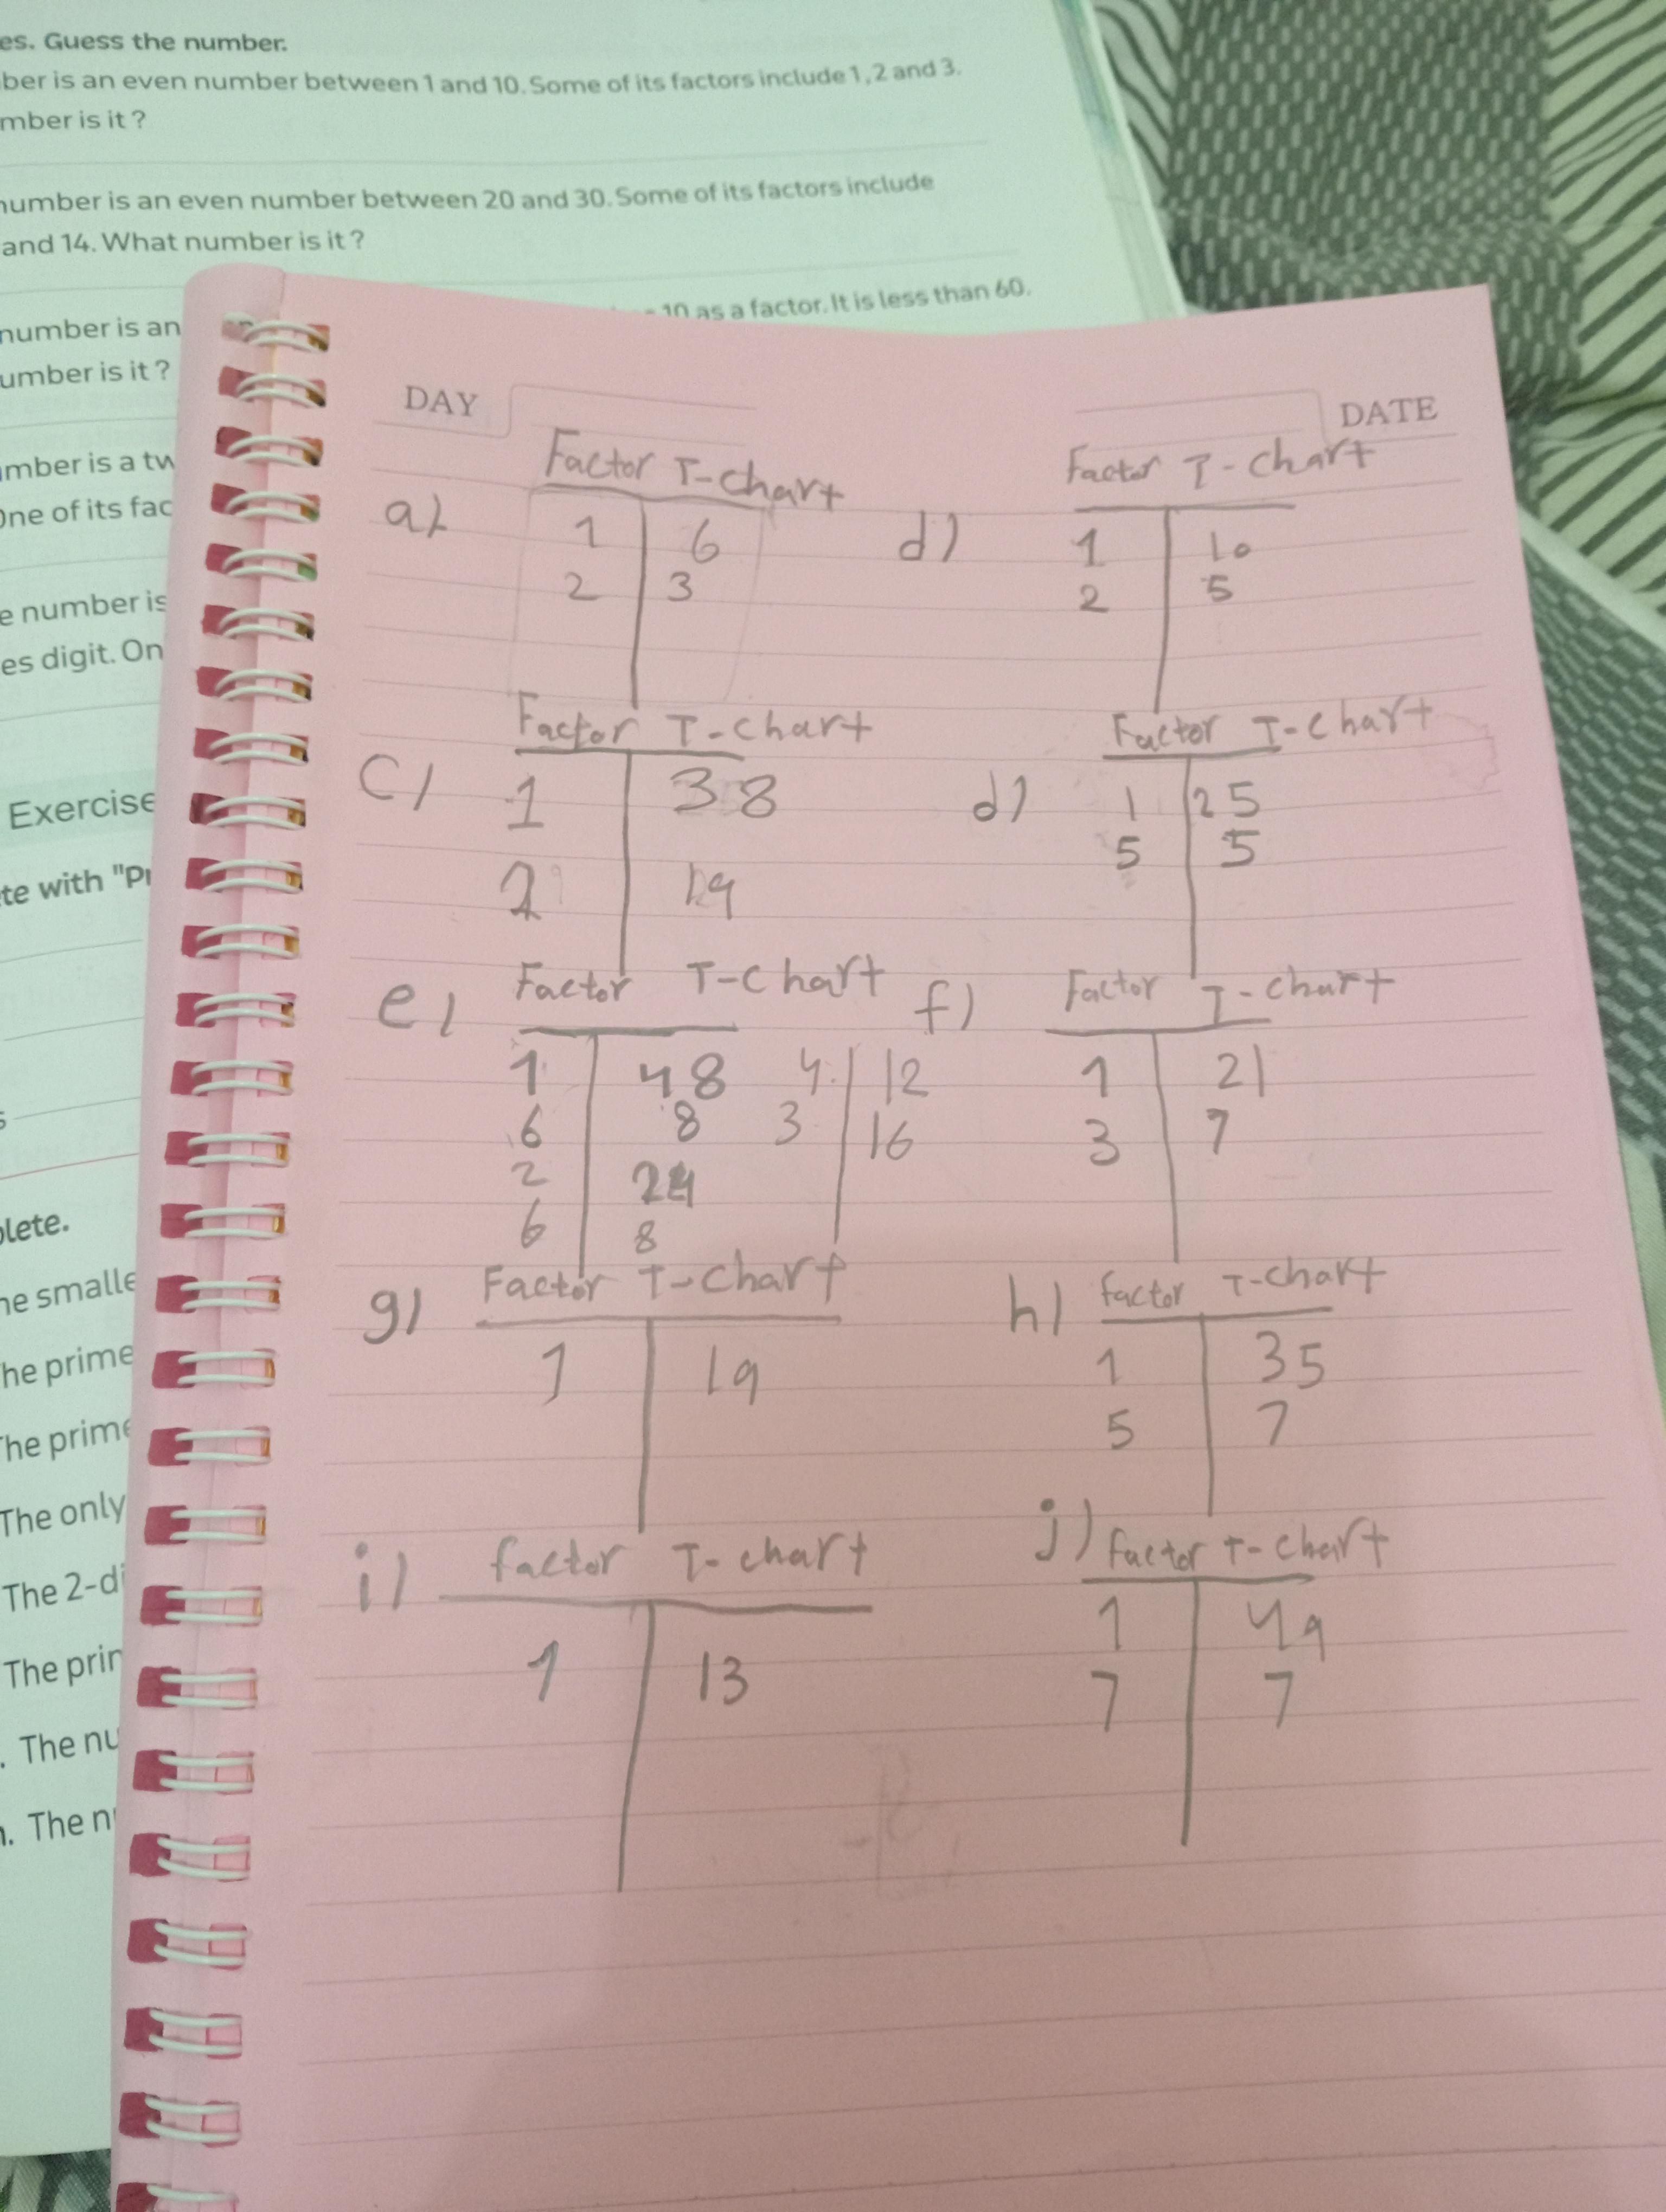 es. Guess the number.
ber is an even number between 1 and 10. Some of its factors include 1, 2 and 3.
mber is it ?
number is an even number between 20 and 30. Some of its factors include
and 14. What number is it ?
number is an
10 as a factor. It is less than 60.
umber is it ?
mber is a tw
One of its fac
e number is
es digit. On
Exercise
te with "Pr
plete.
he smalle
The prime
The prime
The only
The 2-di
The prin
. The nu
. The n
DAY
DATE
a) Factor T-chart
1 6
2 3
d) Factor T-chart
1 10
2 5
c) Factor T-chart
1 38
2 19
d) Factor T-chart
1 25
5 5
e) Factor T-chart
1 48 4 12
6 8 3 16
2 24
6 8
f) Factor T-chart
1 21
3 7
g) Factor T-chart
1 19
h) factor T-chart
1 35
5 7
i) factor T-chart
1 13
j) factor T-chart
1 49
7 7